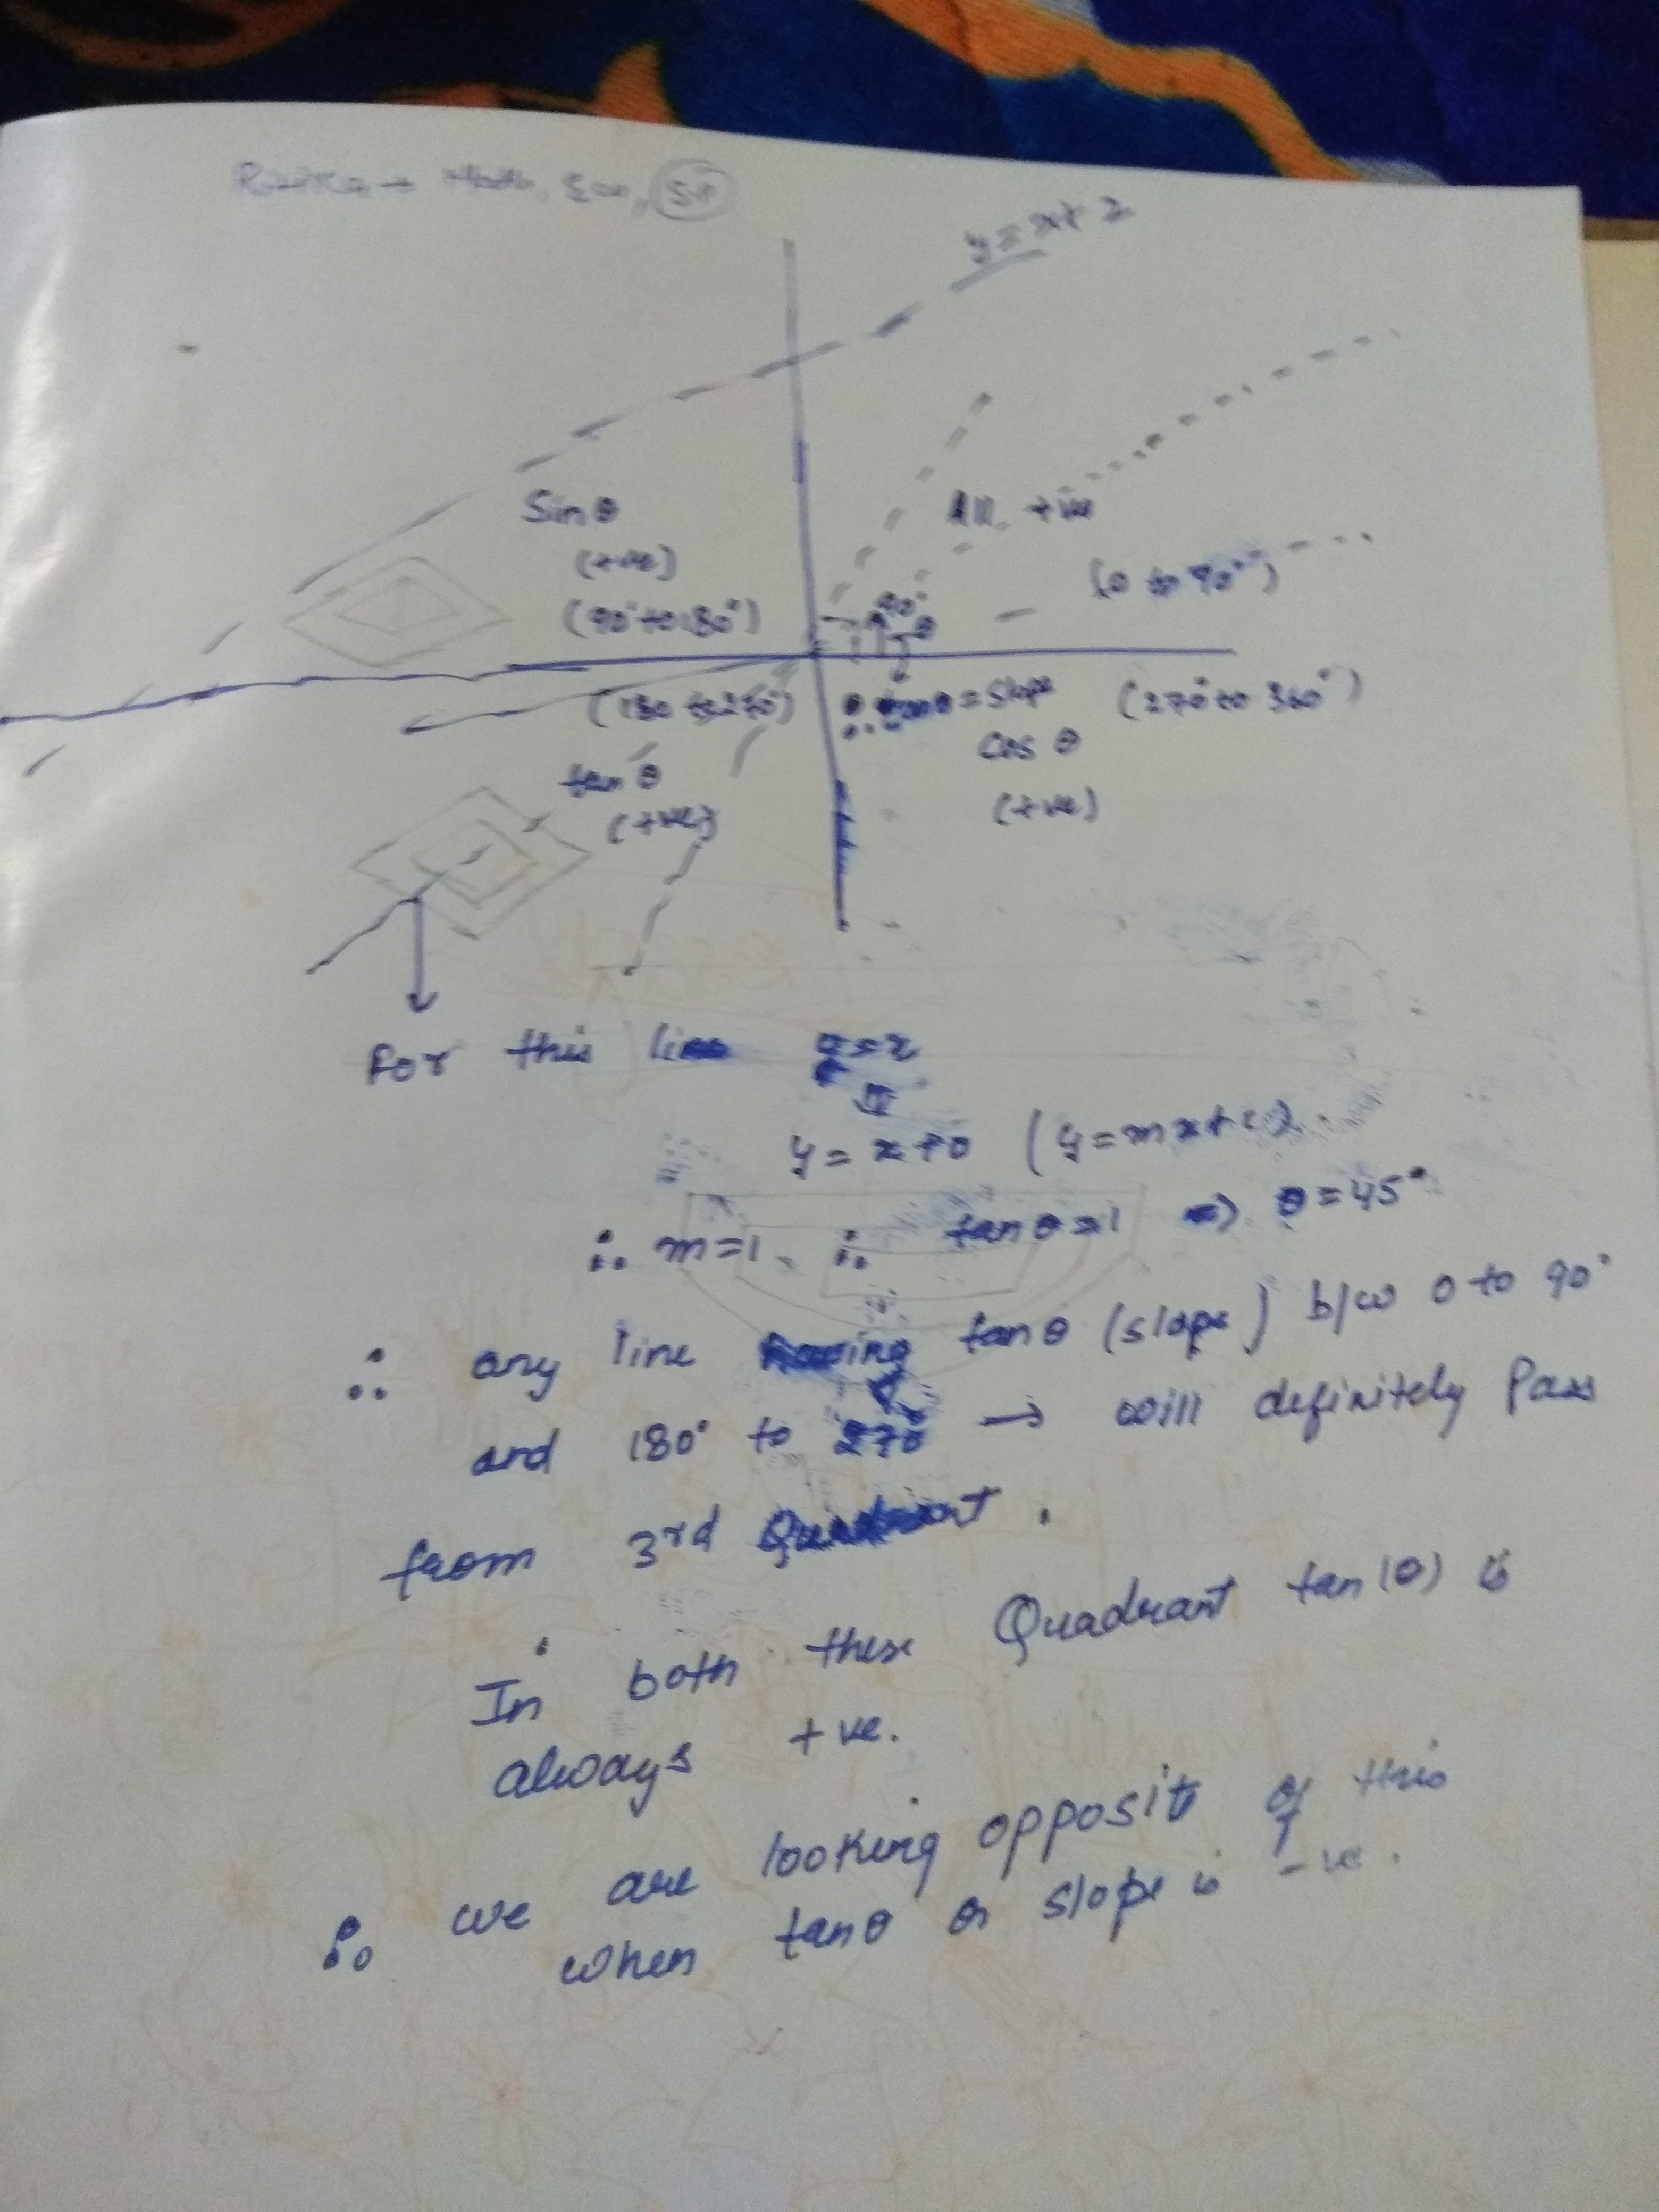 y = x + 2
Sin θ
(+ve)
(90° to 180°)
All +ve
(0 to 90°)
90°
θ
(180 to 270°)
tan θ
(+ve)
∴ tan θ = slope
(270° to 360°)
cos θ
(+ve)
For this line
y = x + 0 (y = mx + c)
∴ m = 1, ∴ tan θ = 1 ⇒ θ = 45°
∴ any line having tan θ (slope) b/w 0 to 90°
and 180° to 270 → will definitely Pass
from 3rd Quadrant.
In both these Quadrant tan(θ) is
always +ve.
∴ we are looking opposit of this
when tan θ or slope is -ve.